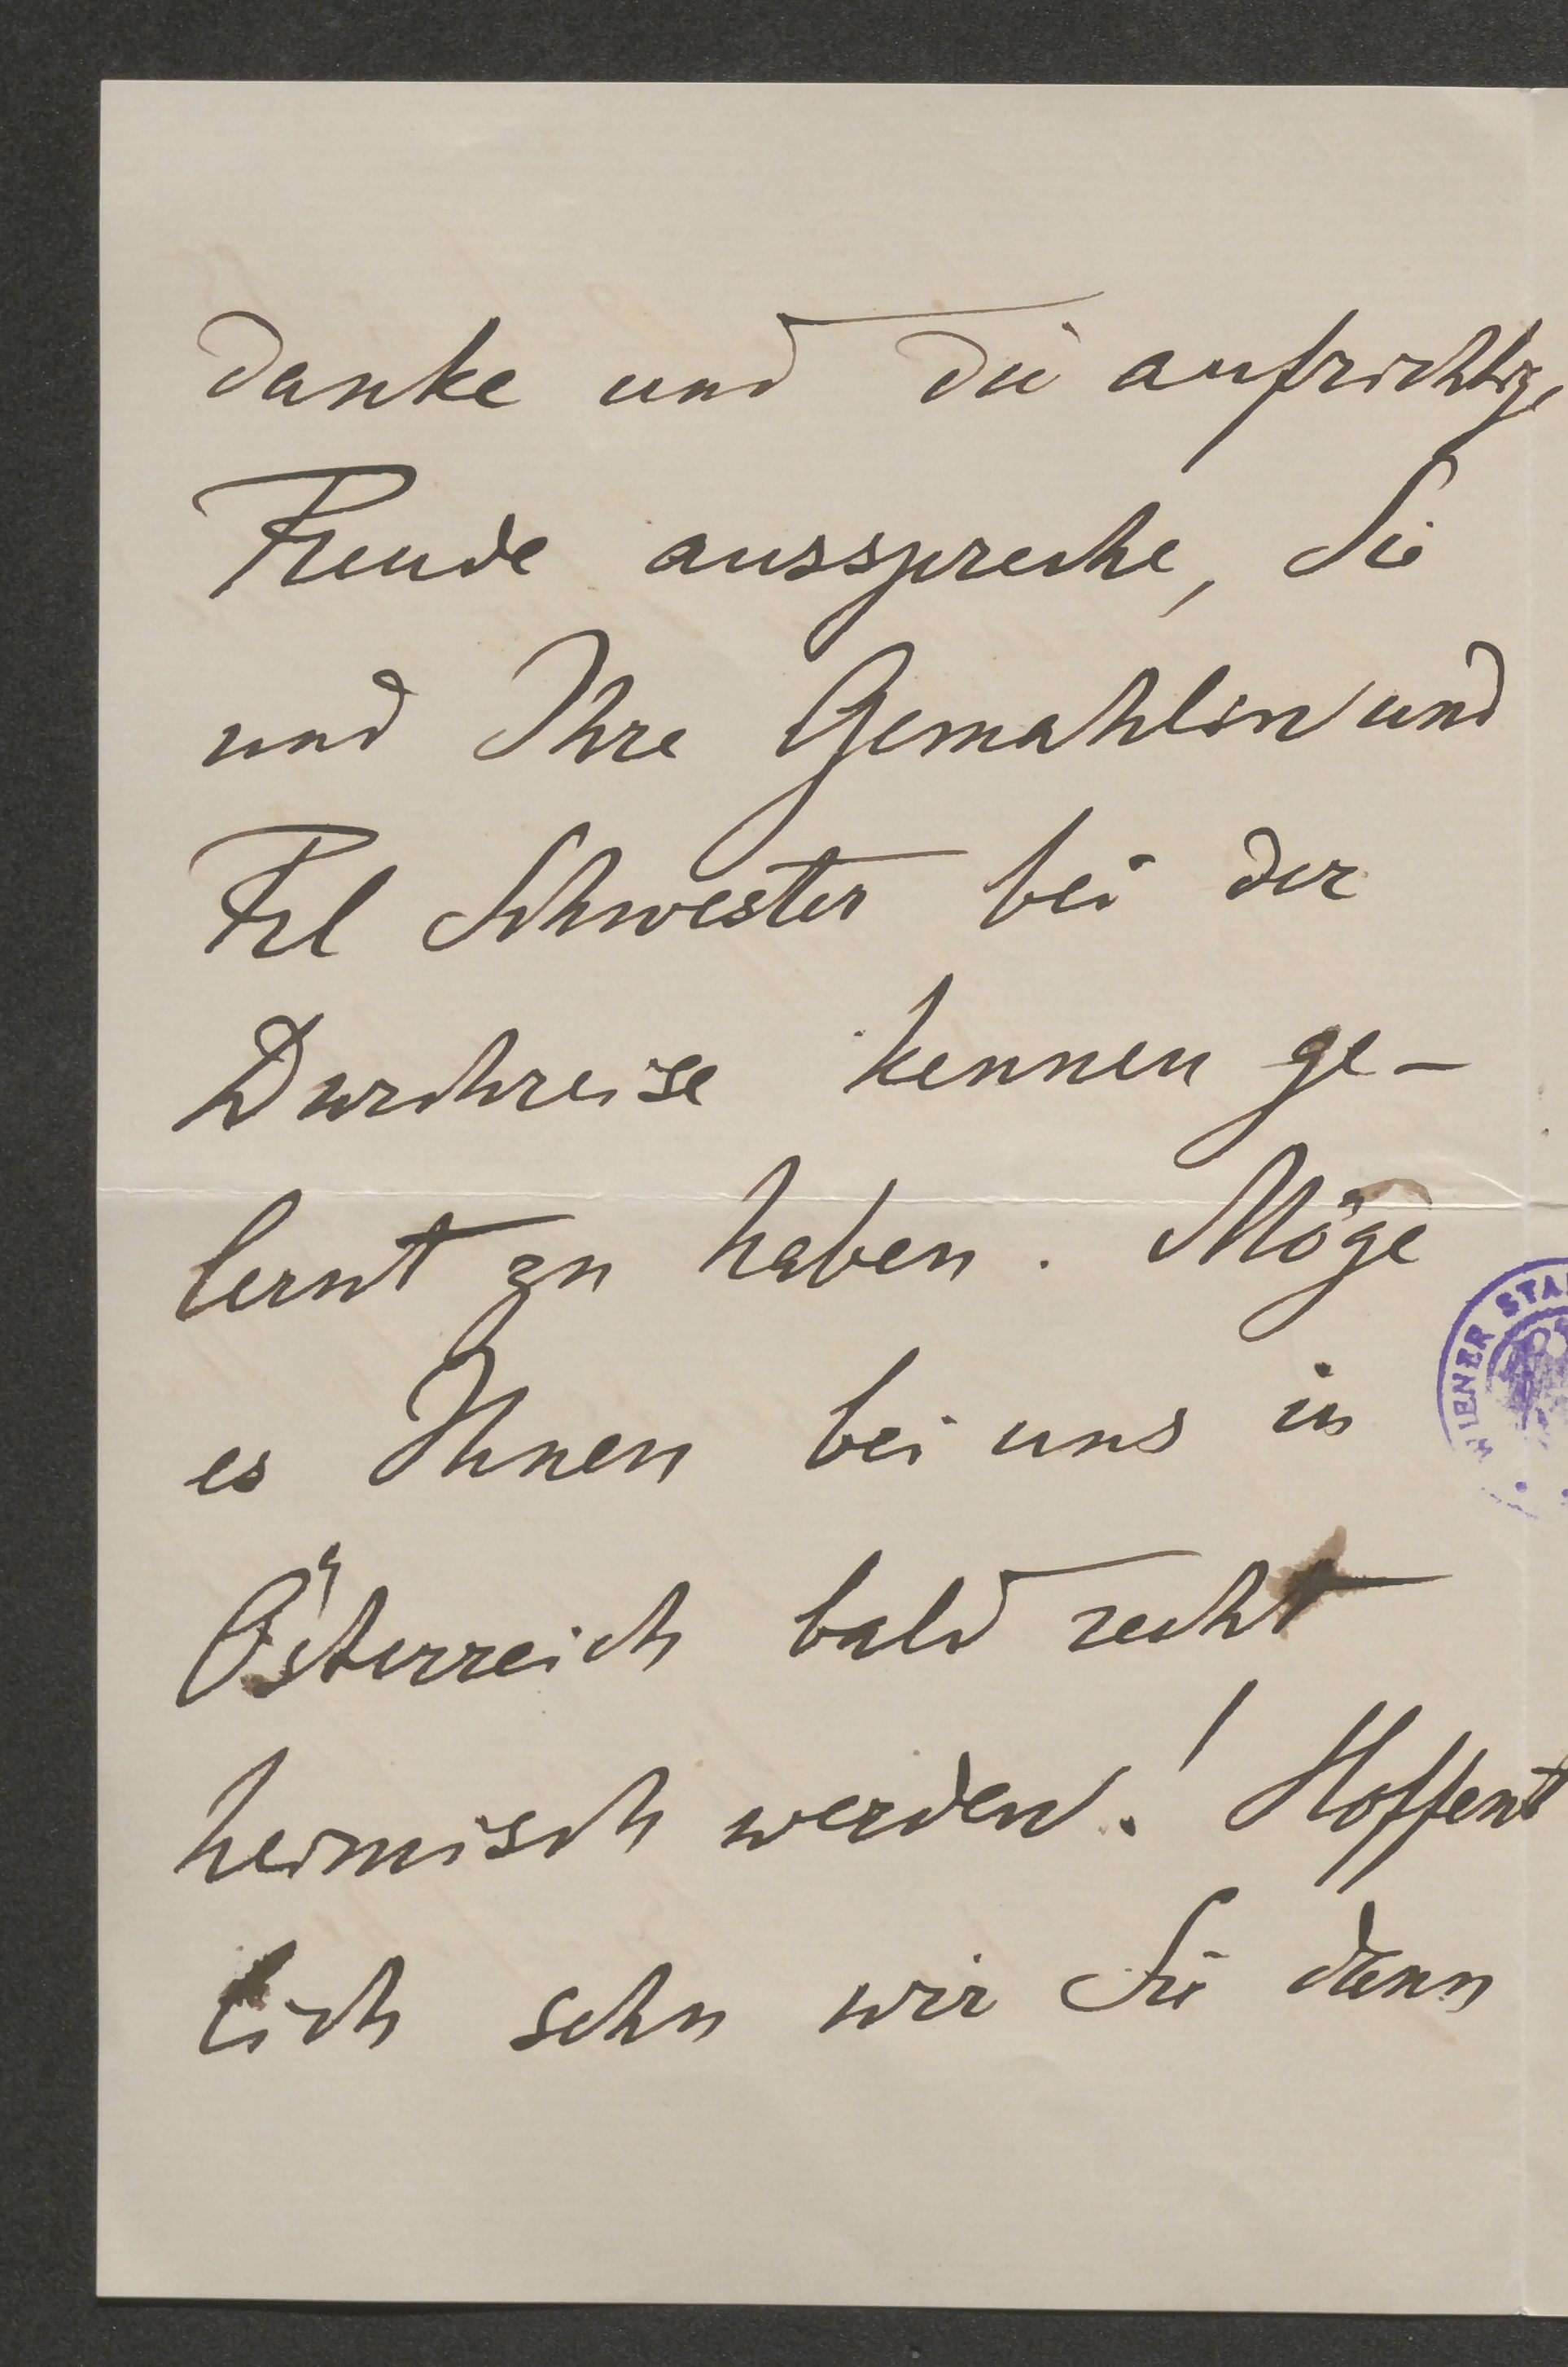 danke und die aufrichtige
Freude ausspreche, Sie
und Ihre Gemahlin und
Frl Schwester bei der
Durchreise kennen ge-
lernt zu haben. Möge
es Ihnen bei uns in
WIENER STA
Österreich bald recht
heimisch werden! Hoffent
lich sehn wir Sie dann